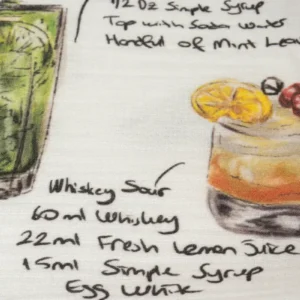 1/2 Oz Simple Syrup
Top with Soda Water
Handful of Mint Lea
Whiskey Sour
60ml Whiskey
22ml Fresh Lemon Juice
15ml Simple Syrup
Egg White